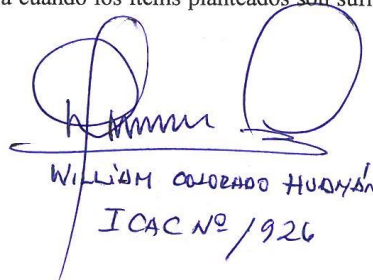 a cuando los ítems planteados son sufi
WILLIAM COLORADO HUAMÁN
ICAC Nº 1926